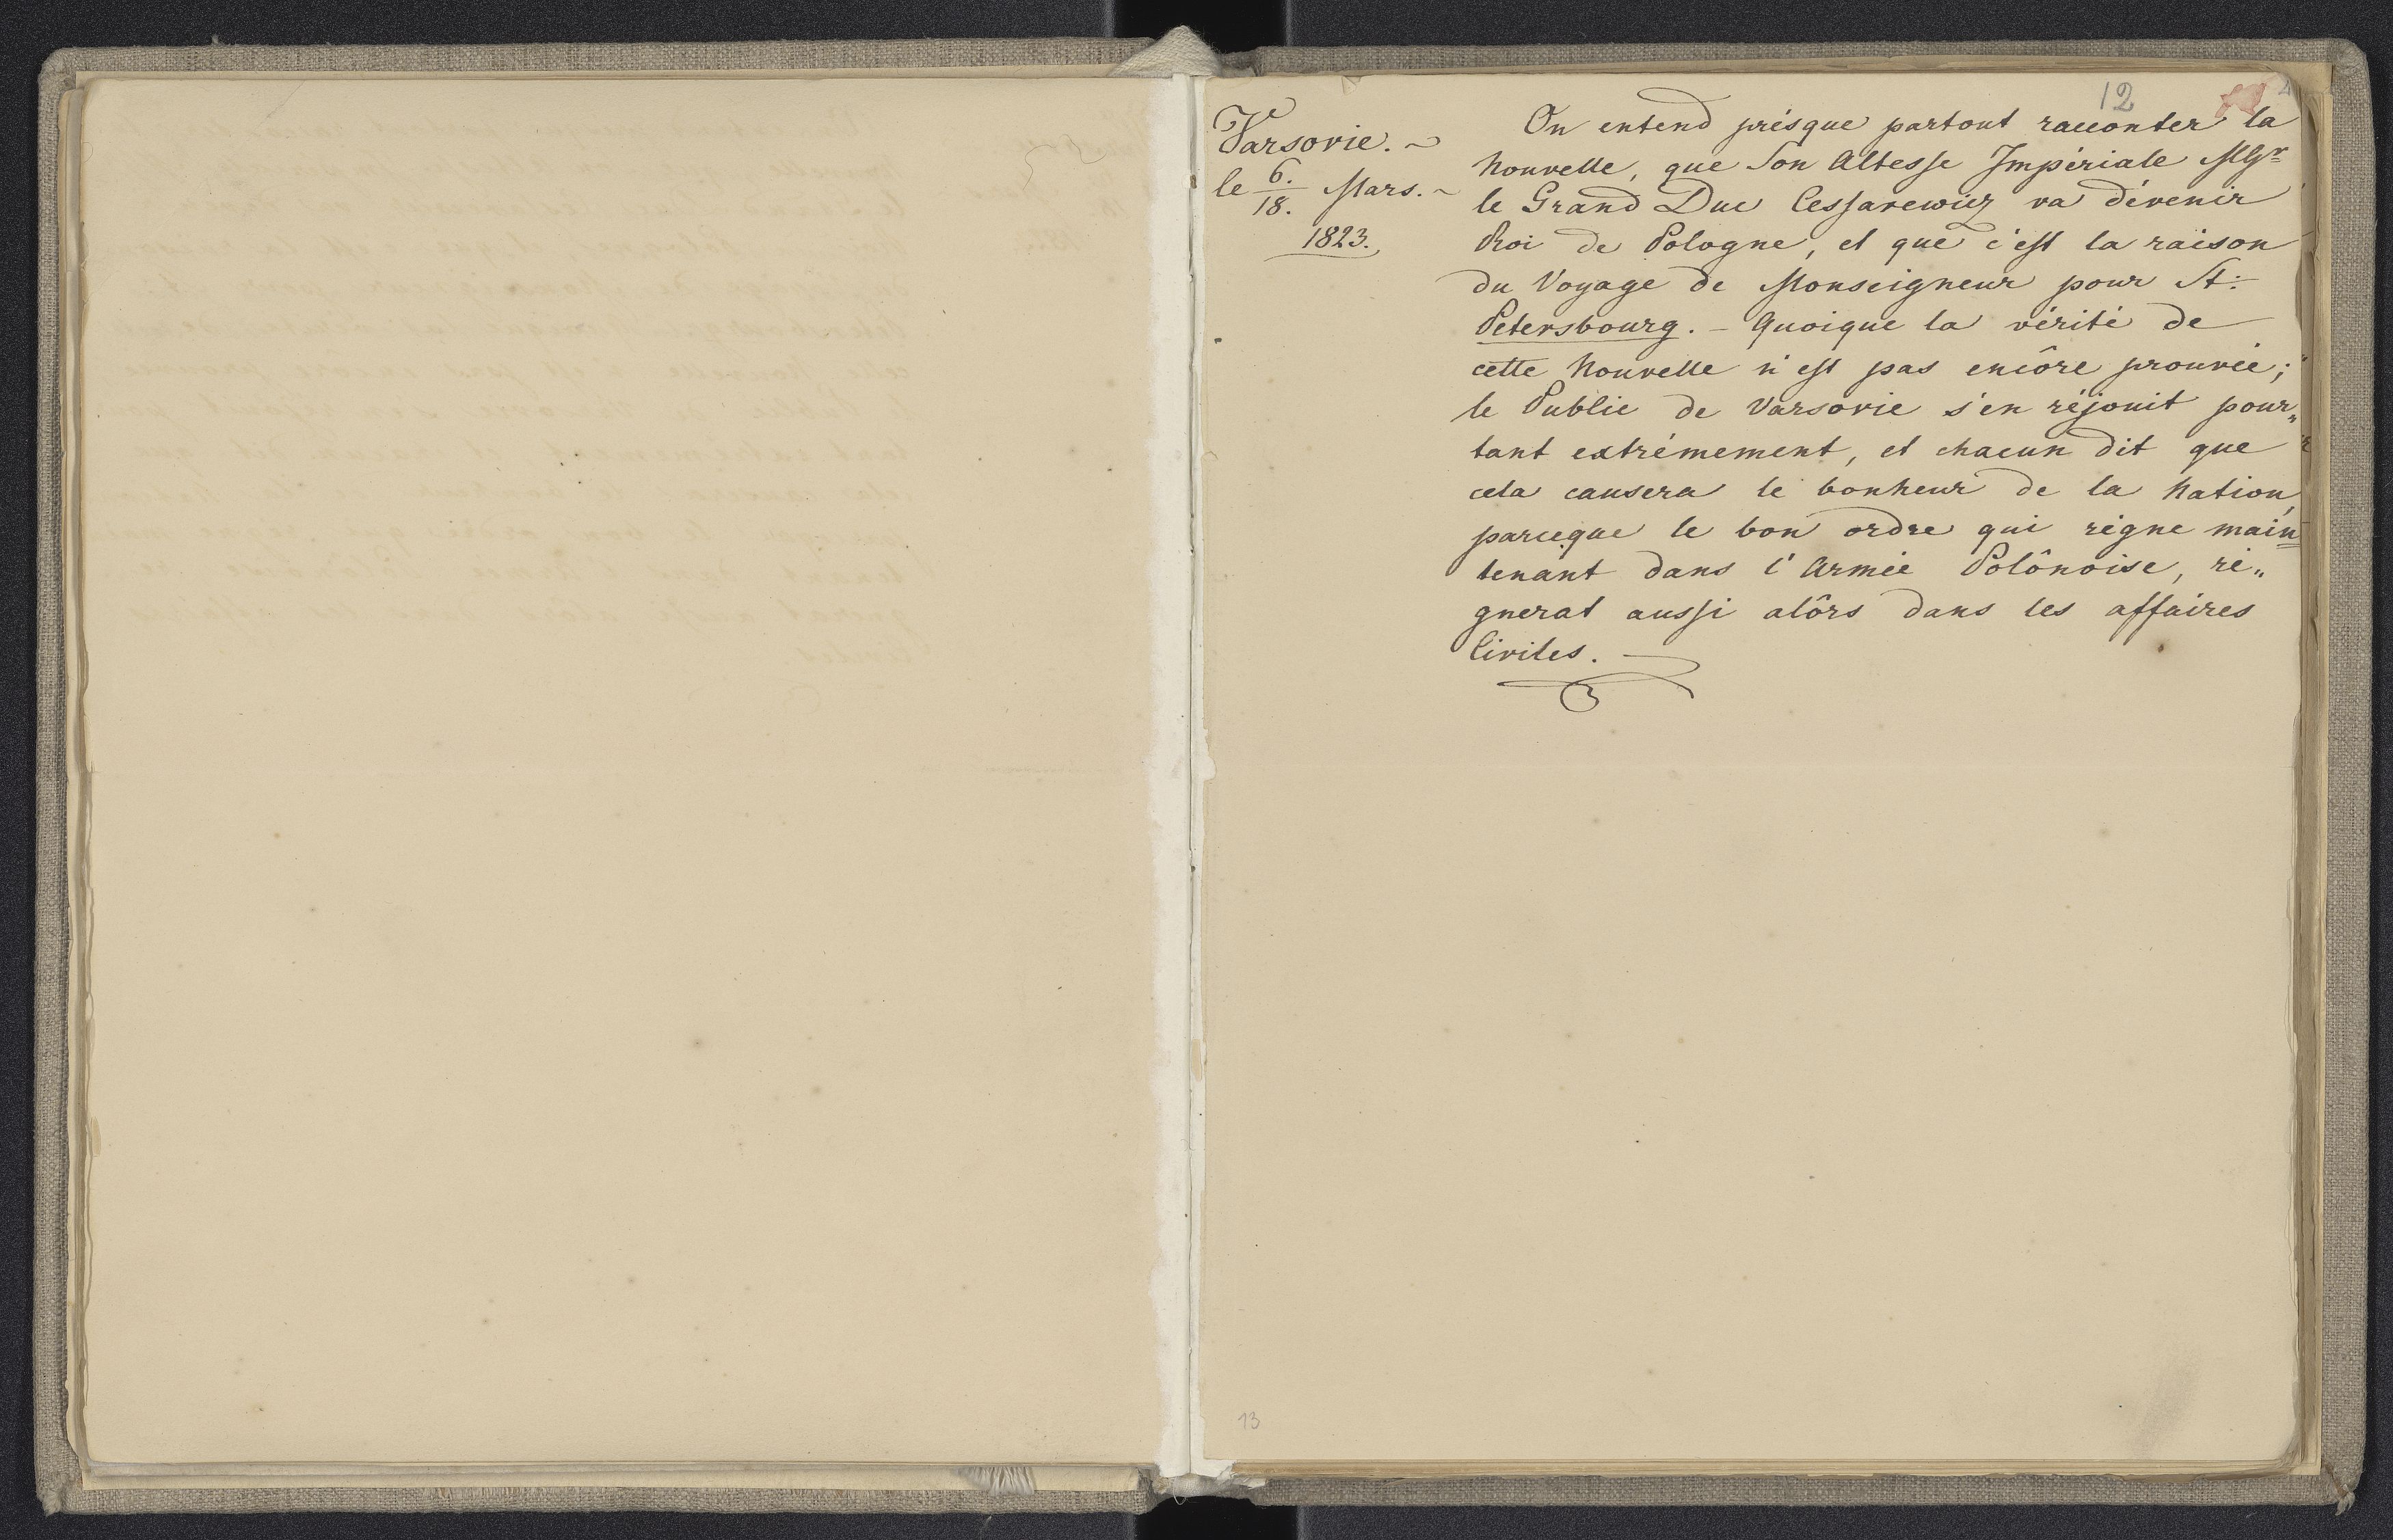 12
Varsovie. ~
le 6./18. Mars. ~
1823.
On entend présque partout raconter la
Nouvelle, que Son Altesse Impériale MGr
le Grand Duc Cessarewicz va dévenir
Roi de Pologne, et que c'est la raison
du Voyage de Monseigneur pour St:
Petersbourg. – Quoique la vérité de
cette Nouvelle n'est pas encôre prouvée;
le Public de Varsovie s'en réjouit pour„
tant extrémement, et chacun dit que
cela causera le bonheur de la Nation,
parceque le bon ordre qui règne main=
tenant dans l'Armée Polônoise, ré„
gnerat aussi alôrs dans les affaires
Civiles. —
13